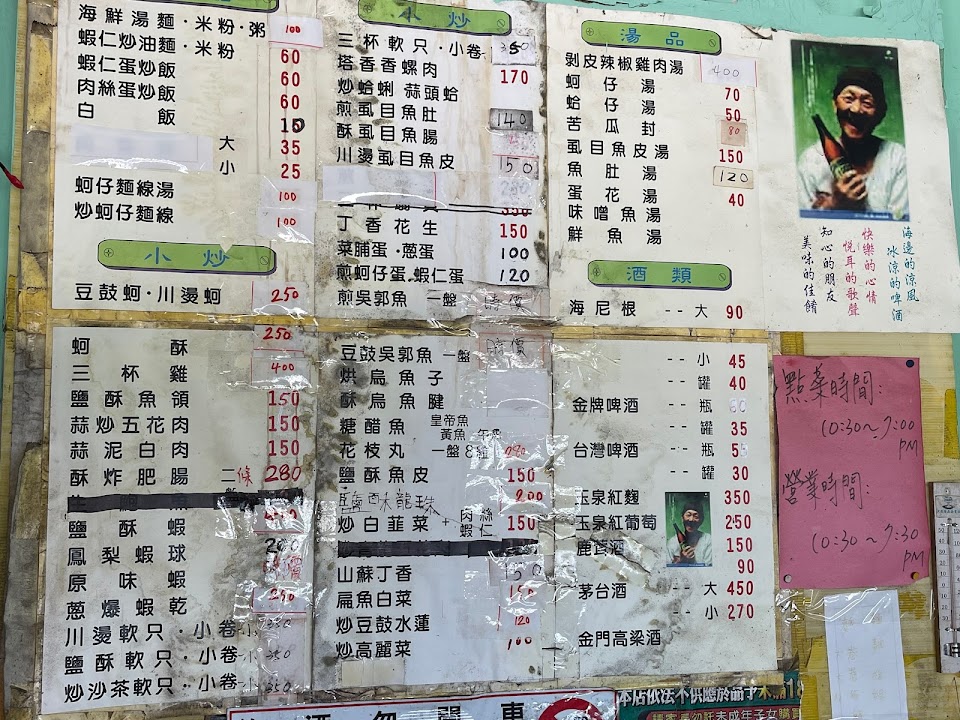 海鮮湯麵·米粉·粥 100
蝦仁炒油麵·米粉 60
蝦仁蛋炒飯 60
肉絲蛋炒飯 60
白飯 10
大 35
小 25
蚵仔麵線湯 100
炒蚵仔麵線 100
小炒
豆鼓蚵·川燙蚵 250
蚵酥 250
三杯雞 400
鹽酥魚領 150
蒜炒五花肉 150
蒜泥白肉 150
酥炸肥腸 二條 280
鹽酥蝦
鳳梨蝦球 200
原味蝦
蔥爆蝦乾 250
川燙軟只·小卷 小 350
鹽酥軟只·小卷 小 350
炒沙茶軟只·小卷 小 350
小炒
三杯軟只·小卷 350
塔香香螺肉 170
炒蛤蜊 蒜頭蛤
煎虱目魚肚 140
酥虱目魚腸
川燙虱目魚皮 150
丁香花生 150
菜脯蛋·蔥蛋 100
煎蚵仔蛋·蝦仁蛋 120
煎吳郭魚 一盤 時價
豆鼓吳郭魚 一盤 時價
烘烏魚子
酥烏魚腱
糖醋魚 皇帝魚 黃魚 午魚
花枝丸 一盤8粒
鹽酥魚皮 150
鹽酥龍珠 200
炒白韮菜 + 肉絲 蝦仁 150
山蘇丁香 150
扁魚白菜 150
炒豆鼓水蓮 120
炒高麗菜 100
湯品
剝皮辣椒雞肉湯 400
蚵仔湯 70
蛤仔湯 50
苦瓜封 80
虱目魚皮湯 150
魚肚湯 120
蛋花湯 40
味噌魚湯
鮮魚湯
酒類
海尼根 -- 大 90
-- 小 45
-- 罐 40
金牌啤酒 -- 瓶 60
-- 罐 35
台灣啤酒 -- 瓶
-- 罐 30
玉泉紅麴 350
玉泉紅葡萄 250
鹿茸酒 150
90
茅台酒 -- 大 450
-- 小 270
金門高梁酒
海邊的涼風
冰涼的啤酒
快樂的心情
悅耳的歌聲
知心的朋友
美味的佳餚
點菜時間:
10:30~7:00
PM
營業時間:
10:30~7:30
PM
本店依法不供應於餉予未滿18